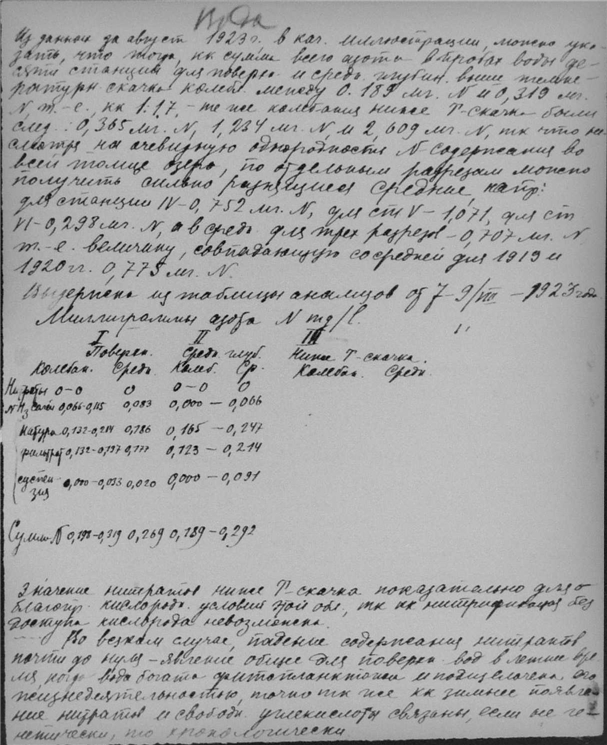 Из данных за август 1923 г. в кач. иллюстрации, можно ука-
зать, что тогда, кк сумма всего азота в пробах воды де-
сяти станций для поверхн. и средн. глубин выше темпе-
ратурн. скачка колеб. между 0.189 мг. N и 0,319 мг.
N т.-е. кк 1:1,7, - те же колебания ниже Т-скачка были
след.: 0,365 мг. N, 1,234 мг. N и 2,609 мг. N, тк что не-
смотря на очевидную однородность N содержания во
всей толще озера, по отдельным разрезам можно
получить сильно разнящиеся средние, напр:
для станции IV - 0,752 мг. N, для ст V - 1,071, для ст
VI - 0,298 мг. N, а в средн для трех разрезов - 0,707 мг. N
т.-е. величину, совпадающую со средней для 1919 и
1920 гг. 0,775 мг. N.
Выдержка из таблицы анализов от 7-9/ - 1923 года
Миллиграммы азота N mg/l.
I II III
Поверхн. Средн. глуб. Ниже Т-скачка.
Колебан. Средн. Колеб. Ср. Колебан. Средн.
Нитраты 0-0 0 0-0 0
0,066-0,115 0,083 0,000 - 0,066
натура 0,186 0,165 - 0,247
фильтрат 0,123 - 0,214
суспен-
зия 0,000-0,033 0,020 0,000 - 0,091
Сумма N 0,269 0,189 - 0,292
Значение нитратов ниже Т-скачка показательно для
благопр. кислородн. условий этой обл, тк кк нитрификация без
доступа кислорода невозможна.
Во всяком случае, падение содержания нитратов
почти до нуля - явление общее для поверхн вод в летнее вре-
мя, когда вода богата фитопланктоном и подщелочена его
жизнедеятельностью, точно тк же кк зимнее появле-
ние нитратов и свободн. углекислоты связаны, если не ге-
нетически, то хронологически